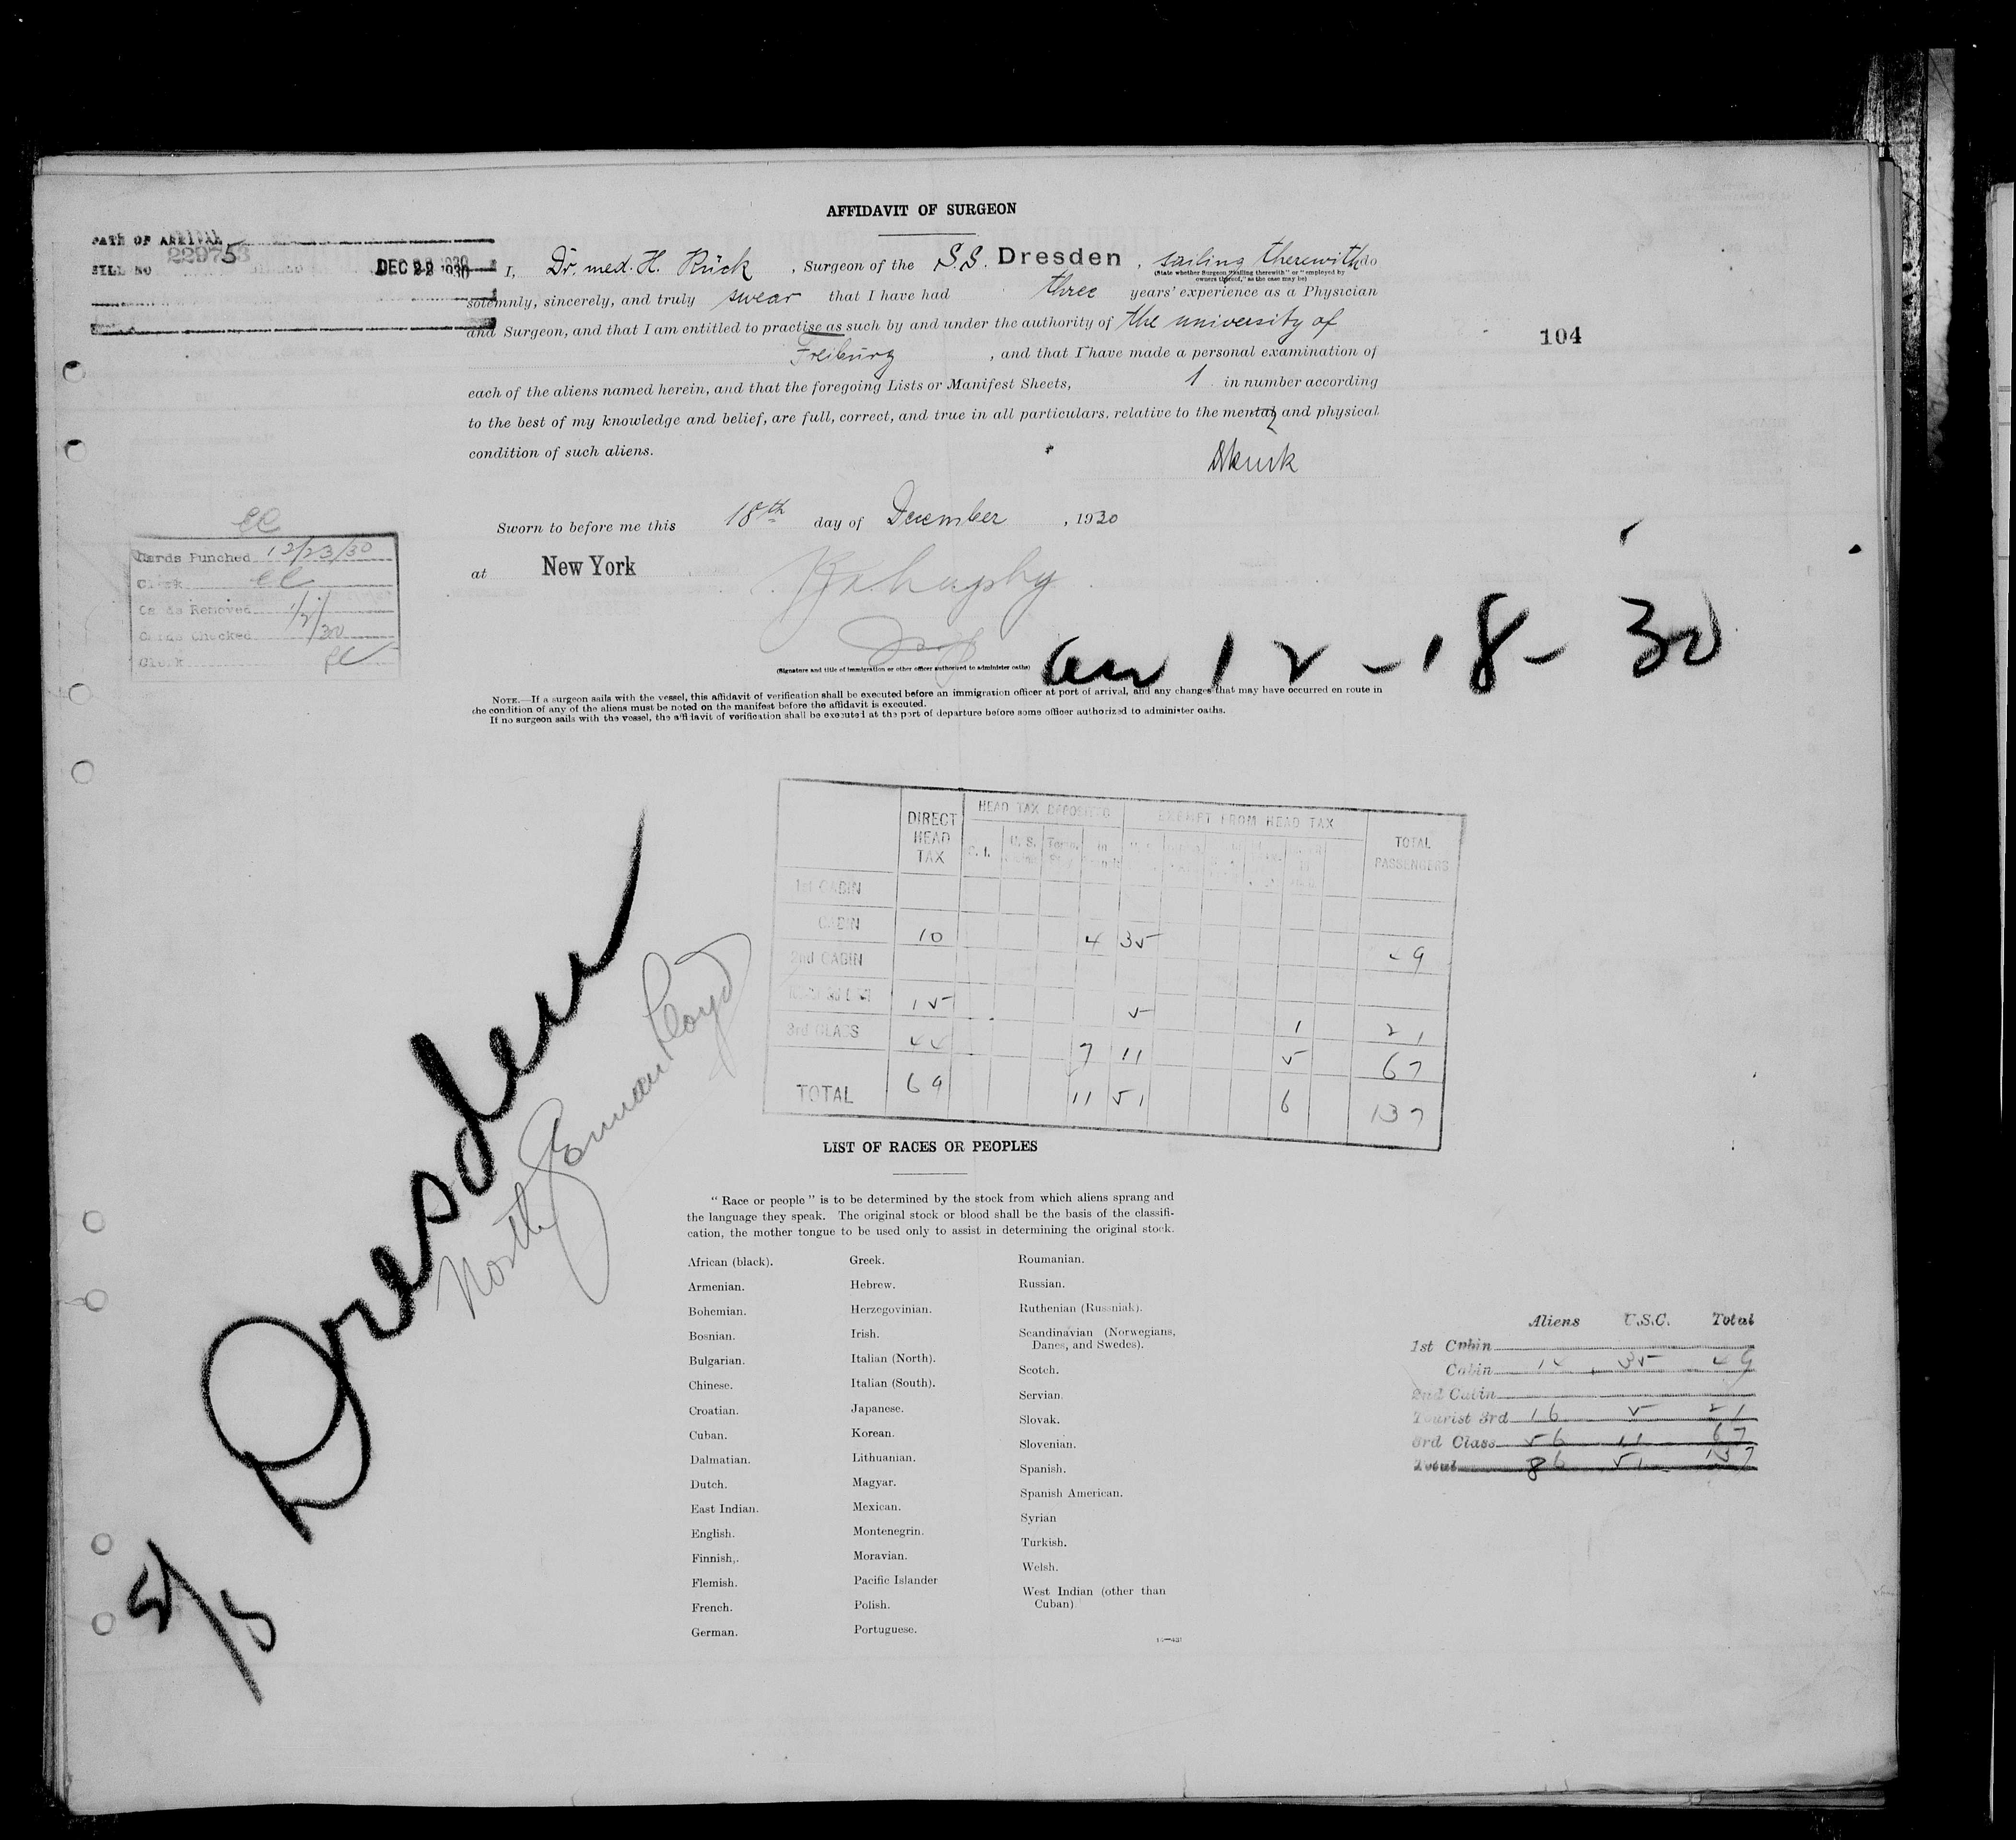 AFFIDAVIT OF SURGEON
DATE OF ARRIVAL
BILL NO 229753
DEC 22 1930
I, Dr. med. H. Rück, Surgeon of the S.S. Dresden, sailing therewith do
(State whether Surgeon "sailing therewith" or "employed by
owners thereof," as the case may be)
solemnly, sincerely, and truly swear that I have had three years' experience as a Physician
and Surgeon, and that I am entitled to practise as such by and under the authority of the university of
Freiburg, and that I have made a personal examination of
104
each of the aliens named herein, and that the foregoing Lists or Manifest Sheets, 1 in number according
to the best of my knowledge and belief, are full, correct, and true in all particulars, relative to the mental and physical
condition of such aliens.
Sworn to before me this 18th day of December, 1930
at New York
Cards Punched 12/23/30
Clerk
Cards Removed
Cards Checked
Clerk
(Signature and title of immigration or other officer authorized to administer oaths)
arr 12-18-30
NOTE.—If a surgeon sails with the vessel, this affidavit of verification shall be executed before an immigration officer at port of arrival, and any changes that may have occurred en route in
the condition of any of the aliens must be noted on the manifest before the affidavit is executed.
If no surgeon sails with the vessel, the affidavit of verification shall be executed at the port of departure before some officer authorized to administer oaths.
DIRECT HEAD TAX
HEAD TAX DEPOSITED
EXEMPT FROM HEAD TAX
TOTAL PASSENGERS
1st CABIN
CABIN 10 4 35 49
2nd CABIN
15 5 1 21
3rd CLASS 44 7 11 5 67
TOTAL 69 11 51 6 137
Dresden
North German Lloyd
LIST OF RACES OR PEOPLES
" Race or people " is to be determined by the stock from which aliens sprang and
the language they speak. The original stock or blood shall be the basis of the classifi-
cation, the mother tongue to be used only to assist in determining the original stock.
African (black).
Armenian.
Bohemian.
Bosnian.
Bulgarian.
Chinese.
Croatian.
Cuban.
Dalmatian.
Dutch.
East Indian.
English.
Finnish,.
Flemish.
French.
German.
Greek.
Hebrew.
Herzegovinian.
Irish.
Italian (North).
Italian (South).
Japanese.
Korean.
Lithuanian.
Magyar.
Mexican.
Montenegrin.
Moravian.
Pacific Islander
Polish.
Portuguese.
Roumanian.
Russian.
Ruthenian (Russniak).
Scandinavian (Norwegians,
Danes, and Swedes).
Scotch.
Servian.
Slovak.
Slovenian.
Spanish.
Spanish American.
Syrian
Turkish.
Welsh.
West Indian (other than
Cuban)
Aliens U.S.C. Total
1st Cabin
Cabin 14 35 49
2nd Cabin
Tourist 3rd 16 5 21
3rd Class 56 11 67
Total 86 51 137